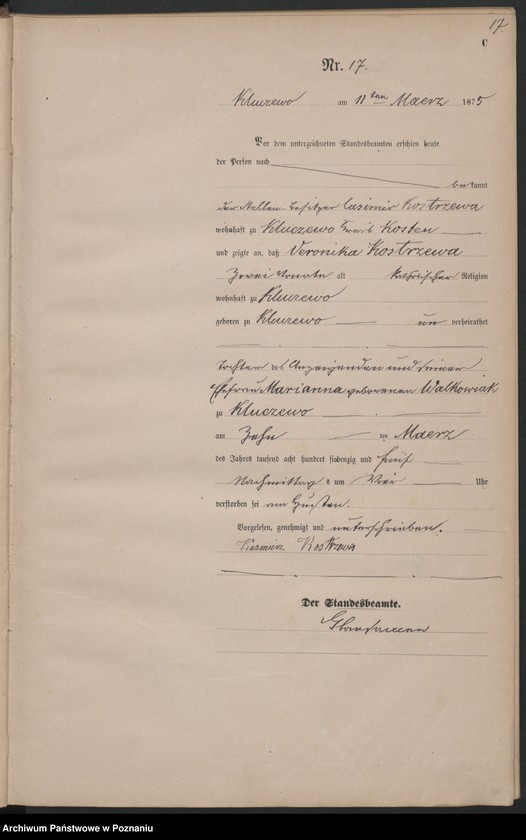 17.
C
Nr. 17.
Kluczewo am 11ten Maerz 1875
Vor dem unterzeichneten Standesbeamten erschien heute
der Person nach
bekannt
der Stellen-Besitzer Casimir Kostrzewa
wohnhaft zu Kluczewo Kreis Kosten
und zeigte an, daß Veronika Kostrzewa
Zwei Monate alt katholischer Religion
wohnhaft zu Kluczewo
geboren zu Kluczewo un verheirathet
Tochter des Anzeigenden und seiner
Ehefrau Marianna geborenen Walkowiak
zu Kluczewo
am Zehn ten Maerz
des Jahres tausend acht hundert siebenzig und fünf
Nachmittags um Vier Uhr
verstorben sei am Husten.
Vorgelesen, genehmigt und unterschrieben.
Kazmirz Kostrzewa
Der Standesbeamte.
Archiwum Państwowe w Poznaniu